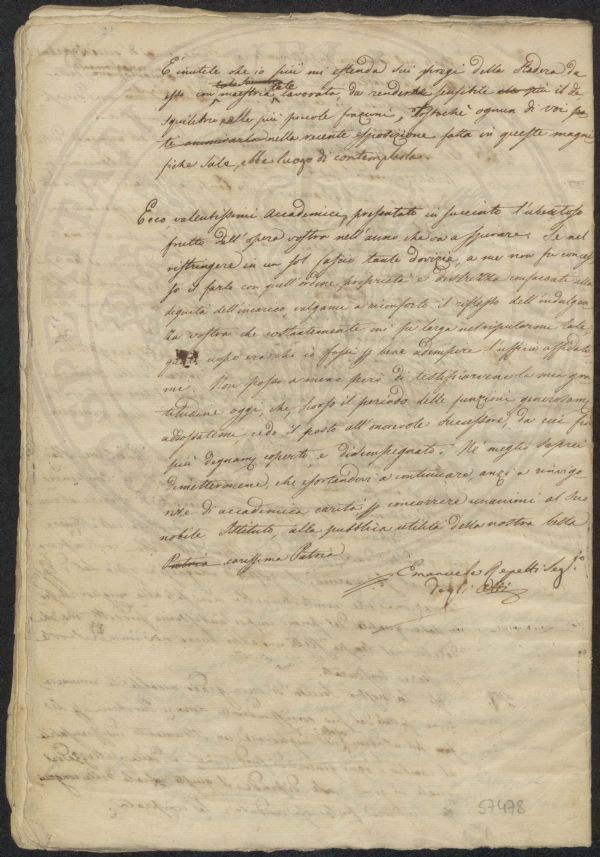 È inutile che io più mi estenda sui pregi della Stadera da
esso con maestria tale lavorata da rendere sensibile il di
squilibrio nelle più piccole frazioni, tosto chè ognun di voi
nella recente esposizione fatta in queste magni
fiche Sale, ebbe luogo di contemplarla.
Ecco valentissimi Accademici, presentato in succinto l'ubertoso
frutto dell'opera vostra nell'anno che va a spirare. Se nel
ristringere in un sol fascio tante dovizie, a me non fu conces
so il farlo con quell'ordine, proprietà e destrezza confacente alla
dignità dell'incarico, valgami a conforto il riflesso dell'indulgen
za vostra che costantemente mi fu larga nel reputarmi tale
uopo era che io fossi p bene adempire l'uffizio affidato
mi. Non posso a meno però di testificarvene la mia gra
titudine oggi, che, scorso il periodo delle funzioni generosam.
addossatemi cedo il posto all'onorevole Successore, da cui fia
più degnam. coperto, e disimpegnato. Nè meglio saprei
dimettermene, che esortandovi a continuare, anzi a rinvigo
rire d'accademica carità p concorrere unanimi al
nobile Istituto, alla pubblica utilità della nostra bella
Patria carissima Patria
Emanuele Repetti Seg.io
degli Atti
57478